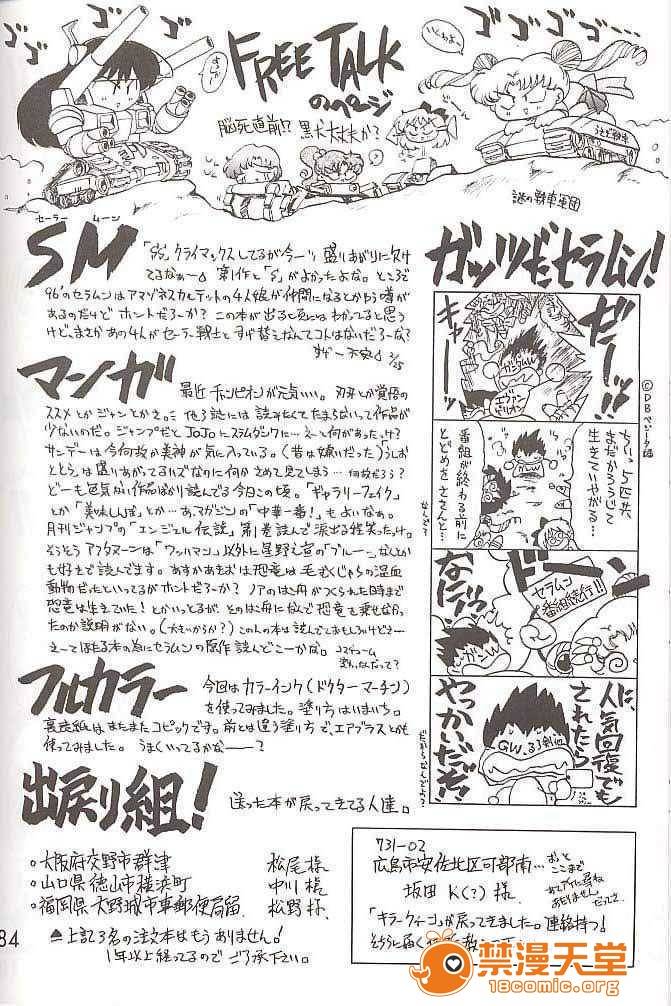 ゴゴゴ
FREE TALK
のページ
脳死直前!? 黒犬大丈夫か?
ゴゴゴ
謎の戦車軍団
セーラー ムーン
SM
「SS」クライマックスしてるが今一つ盛りあがりに欠け
てるなぁ〜 第1作と「S」がよかったよな。ところで
96'のセラムンはアマゾネスカルテットの4人娘が仲間になるとかゆう噂が
あるのだけど ホントだろーか? この本が出る頃にはわかってると思う
けど、まさかあの4人がセーラー戦士とすげ替えなんてコトはないだろーな?
すげー不安 2/25
マンガ
最近チャンピオンが元気いい。刃牙とか覚悟の
ススメとかジャンとかさ。
少ないのだ。ジャンプだとJoJoにスラムダンクに…え〜と何があったっけ?
サンデーは今何故か美神が気に入っている。(昔は嫌いだった)うしお
ととらは盛りあがってるハズなのに何かさめて見てしまう…何故だろう?
どーも色気ない作品ばかり読んでる今日この頃。「ギャラリーフェイク」
とか「美味しんぼ」とか…あ、マガジンの「中華一番!」もよいなぁ。
月刊ジャンプの「エンジェル伝説」第1巻読んで涙出る程笑ったっけ。
そうそうアフタヌーンは「ワッハマン」以外に星野之宣の「ブルー
も好きで読んでます。あすかあきおは恐竜は毛むくじゃらの温血
動物だったといってるがホントだろーか? ノアのはこ舟がつくられた時まで
恐竜は生きていた!とかいっとるが、そのはこ舟になんで恐竜を乗せなかっ
たのか説明がない。(大きいからか?)この人の本は読んでておもしろいけどさ…
え〜てほたる本の為にセラムンの原作読んどこーかな。
フルカラー
今回はカラーインク(ドクターマーチン)
を使ってみました。塗り方はいまいち。
裏表紙はまたまたコピックです。前とは違う塗り方で、エアブラスとかも
使ってみました。うまくいってるかな――?
出戻り組!
送った本が戻ってきてる人達。
○大阪府交野市郡津 松尾様
○山口県徳山市横浜町 中川様
○福岡県大野城市東郵便局留 松野様
▲上記3名の注文本はもうありません!
1年以上経ってるのでご了承下さい。
731-02
広島市安佐北区可部南…
おっと
ここまで
坂田K(?)様
「キラークィーン」が戻ってきました。連絡待つ!
ガッツだセラムン!
ゼーッ!!
キャー
ガンダムW
エヴァンゲリオン
ちいっ5匹共
まだかろうじて
生きていやがる…
番組が終わる前に
とどめをささんと…
なんで?
ドーン
セラムン
番組続行!!
なにィっ!
人気回復でも
されたら
やっかいだぞ!
GW、るろ剣他
だからなんでよォ?
84
禁漫天堂
18comic.org